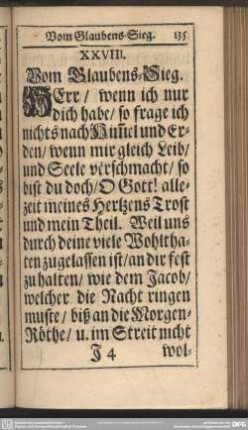 Vom Glaubens-Sieg. 135
XXVIII.
Vom Glaubens-Sieg.
HErr/ wenn ich nur
dich habe/ so frage ich
nichts nach Him̃el und Er-
den/ wenn mir gleich Leib/
und Seele verschmacht/ so
bist du doch/ O Gott! alle-
zeit meines Hertzens Trost
und mein Theil. Weil uns
durch deine viele Wohltha-
ten zugelassen ist/ an dir fest
zu halten/ wie dem Jacob/
welcher die Nacht ringen
muste/ biß an die Morgen-
Röthe/ u. im Streit nicht
J 4 wol-